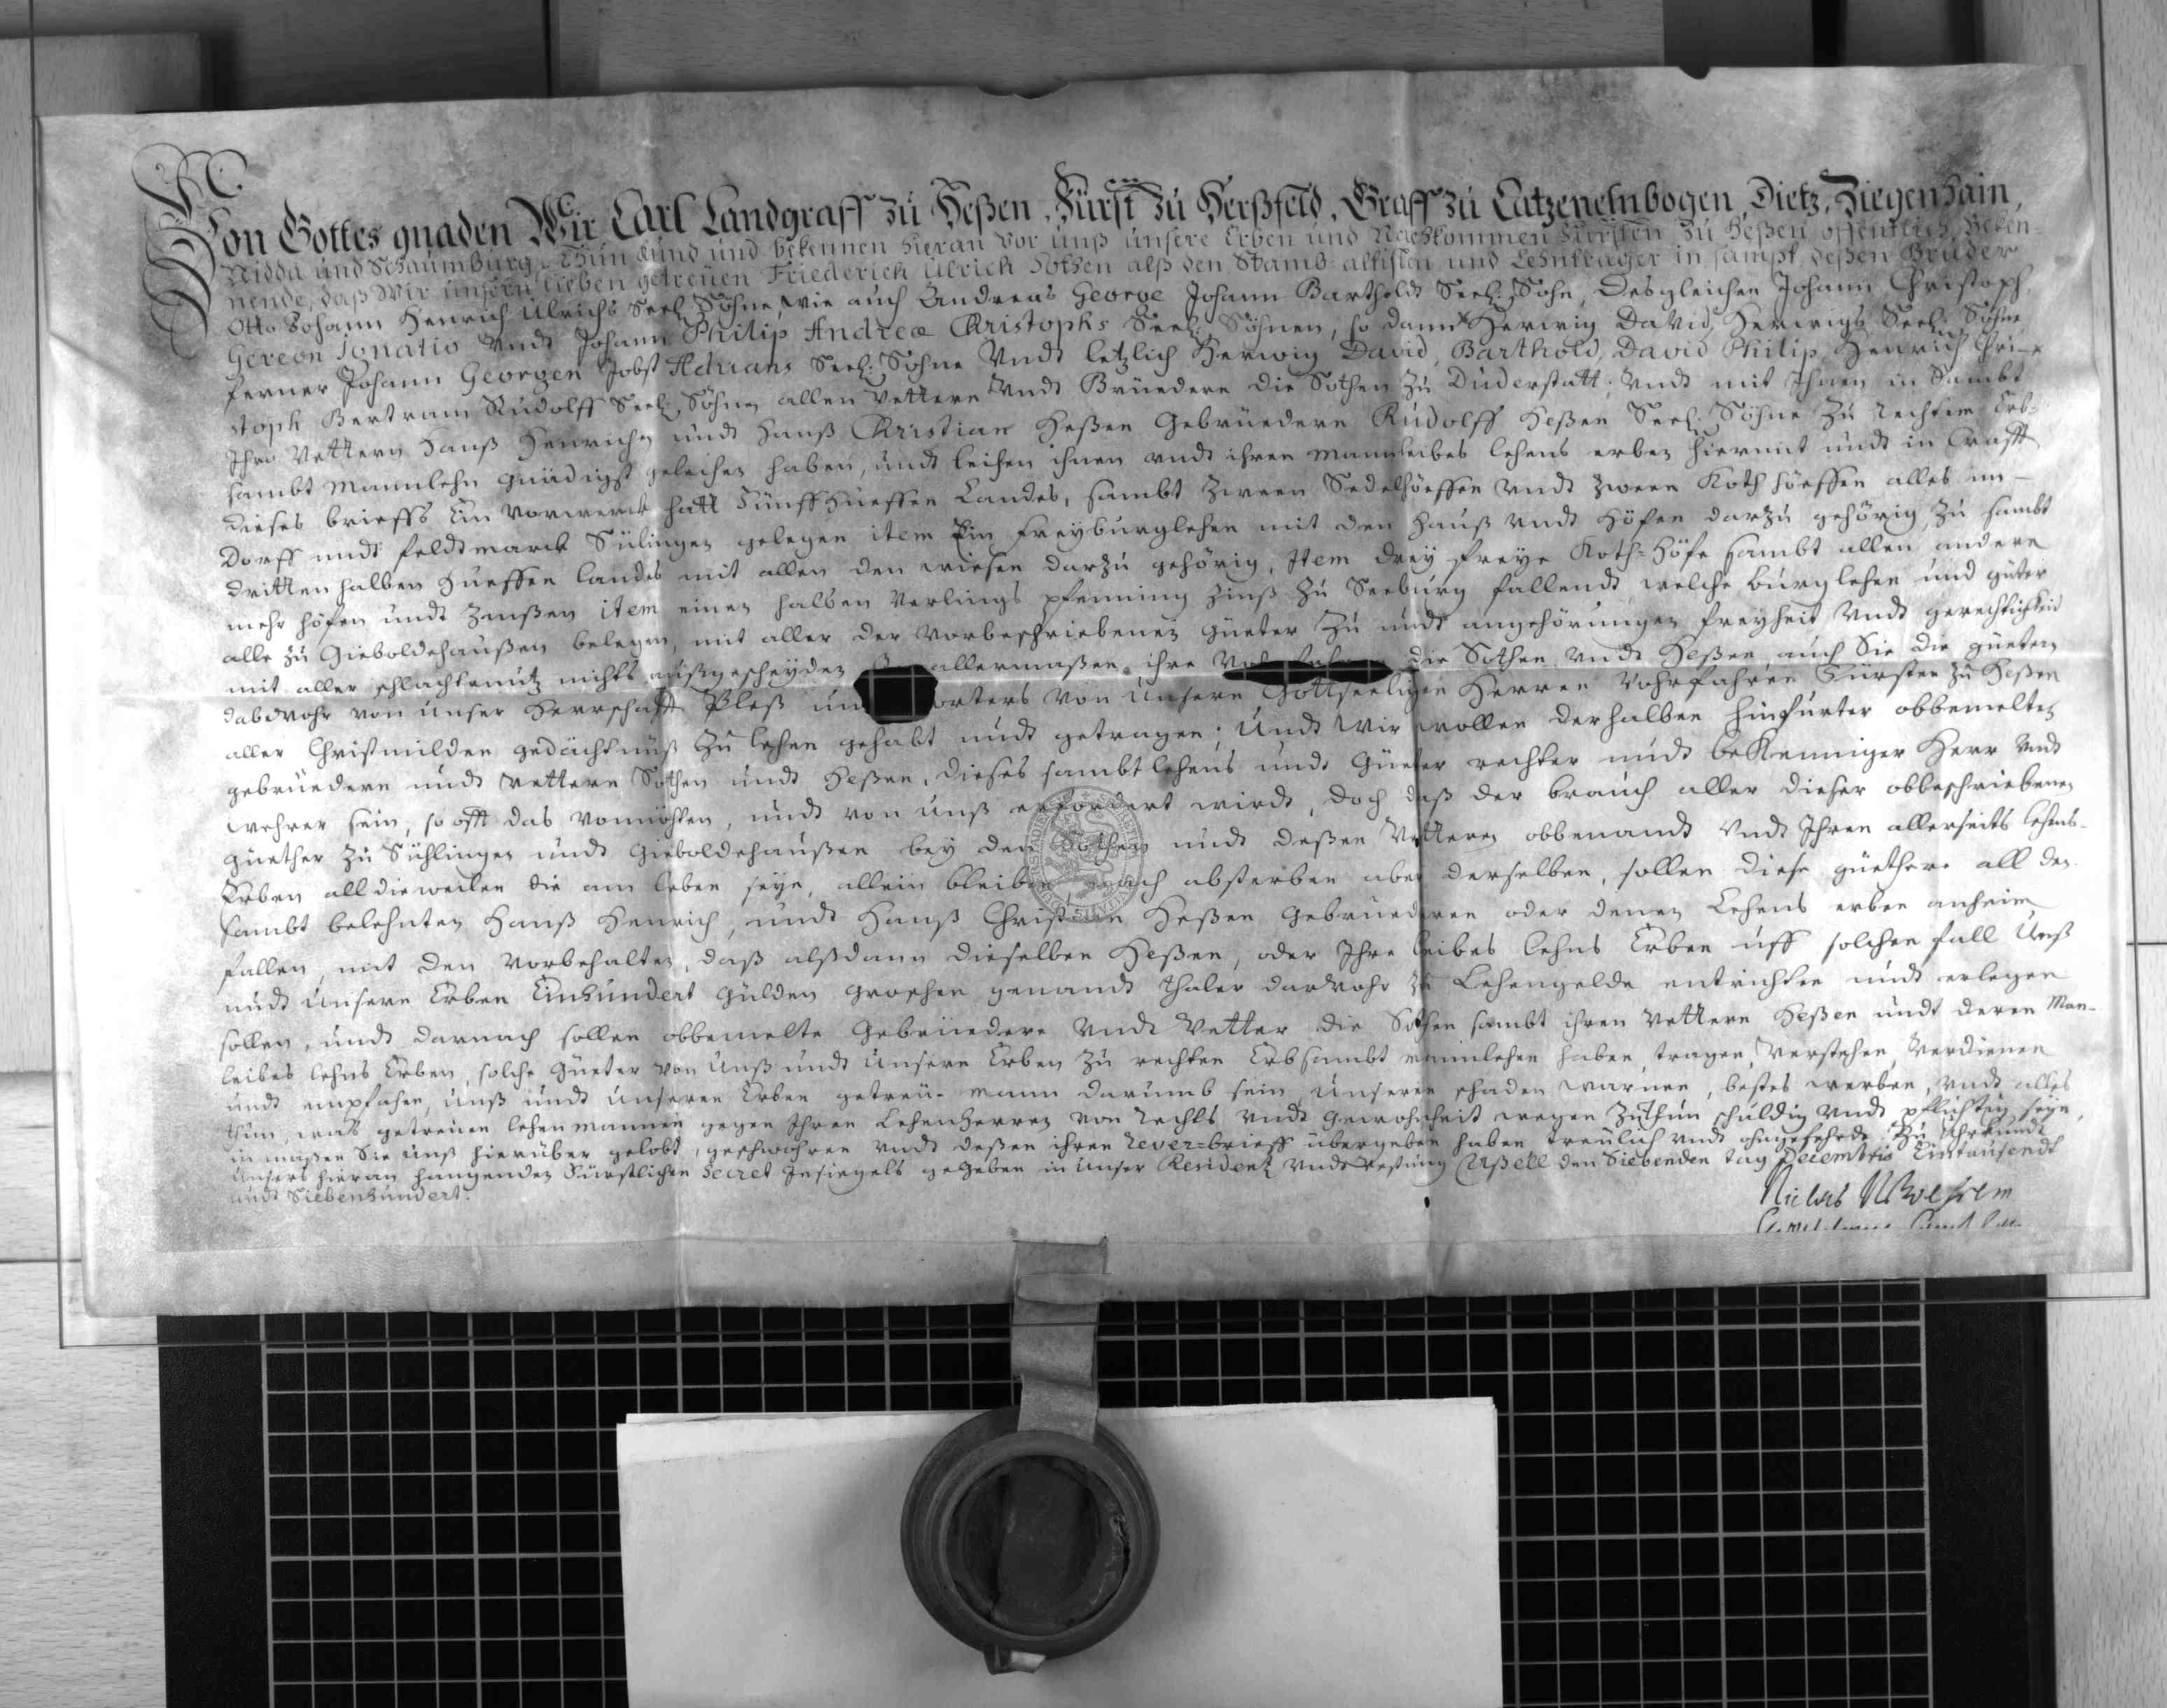 Von Gottes gnaden Wir Carl Landgraff zu Heßen, Fürst zu Herßfeld, Graff zu Catzenelnbogen, Dietz, Ziegenhain,
Nidda und Schaumburg, Thun kund und bekennen hieran vor unß unsere Erben und Nachkommen Fürsten zu Heßen offentlich beken-
nende, daß Wir unsern lieben getreüen Friederich Ulrich Sothen alß den Stamb-altisten und Lehnträger in sampt deßen Brüder
Otto Johann Henrich Ulrichs Seel: Söhne, wie auch Andreas George Johann Bartholdt Seel: Sohn, Desgleichen Johann Christoph,
Gereon Ignatio Undt Johann Philip Andreæ Christophs Seel: Söhnen, so dann Herwig David, Herwigs Seel: Söhne
ferner Johann Georgen Jobst Adrians Seel: Söhne Undt letzlich Herwig David, Barthold, David Philip, Henrich Chri-
stoph Bertram Rudolff Seel: Söhne allen Vettern Undt Brüedern die Sothen zu Duderstatt, Undt mit Ihnen in Sambt
Ihro Vettern Hanß Henrichen undt Hanß Christian Heßen Gebrüedern Rudolff Heßen Seel: Söhne zu rechtem Erb-
sambt Mannlehn gnädigst geliehen haben, undt leihen ihnen undt ihren Mannleibes lehens erben hiermit undt in Crafft
dieses brieffs Ein Vorwerck hatt Fünff hueffen Landes, sambt zween Sedelhöeffen undt zween Koth höeffen alles im-
Dorff undt feldtmarck Sülingen gelegen item Ein freyburglehen mit den Hauß undt Höfen darzu gehörig, zu sambt
dritten halben Hueffen landes mit allen den wiesen darzu gehörig, Item drey freye Koth-Höfe sambt allen andern
mehr höfen undt zinßen item einen halben Verlings pfenning zinß zu Seeburg fallendt welche burglehen und güter
alle zu Gieboldehaußen belegen, mit aller der vorbeschriebenen Güeter zu undt angehörungen freyheit undt gerechtigkeid
mit aller schlachtenutz nichts außgescheyden allermaßen ihre die Sothen undt Heßen, auch Sie die güetern
dabevohr von unser Herrschafft Pleß orters von unsern Gottseeligen Herren Vohrfahren Fürsten zu Heßen
aller Christmilden gedächtnüß zu lehen gehabt undt getragen; Undt Wir wollen derhalben hinfürter obbemelten
gebrüedern undt Vettern Sothen undt Heßen, dieses sambtlehens undt Güeter rechter undt bekenniger Herr undt
wehrer sein, so offt das vonnöhten, undt von unß erfordert wirdt, doch daß der brauch aller dieser obbeschriebenen
güether zu Sühlingen undt Gieboldehaußen bey den Sothen undt deßen Vettern obbenandt Undt Ihren allerseits lehens-
Erben all dieweilen die am leben seyn, allein bleiben nach absterben aber derselben, sollen diese güethere all den
sambt belehnten Hanß Henrich, undt Hanß Christian Heßen Gebrüederen oder denen Lehens erben anheim
fallen, mit den Vorbehalten, daß alßdann dieselben Heßen, oder Ihre leibes lehns Erben uff solchen fall Unß
undt unsern Erben Einhundert gülden groschen genandt thaler darvohr zu Lehengelde entrichten undt erlegen
sollen, undt darnach sollen obbemelte Gebrüedere Undt Vetter die Sothen sambt ihren Vettern Heßen undt deren Man-
leibes lehns Erben, solche Güeter von Unß undt unsern Erben zu rechten Erbsambt mannlehen haben, tragen, Verstehen, Verdienen
undt empfahen, unß undt unseren Erben getreü- mann darumb sein, unseren schaden warnen, bestes werben, undt alles
thun, was getreuen lehen mannen gegen Ihren Lehenherren von rechts undt gewohnheit wegen zuthun schuldig undt pflichtig seyn,
inmaßen Sie unß hierüber gelobt, geschwohren undt deßen ihren Rever=brieff übergeben haben treulich undt ohngefehrde. Zu Uhrkundt
unsers hieran hangenden Fürstlichen Secret Insiegels gegeben in unser Residentz undt Vestung Caßell den Siebenden tag Decembris Eintausendt
undt Siebenhundert.